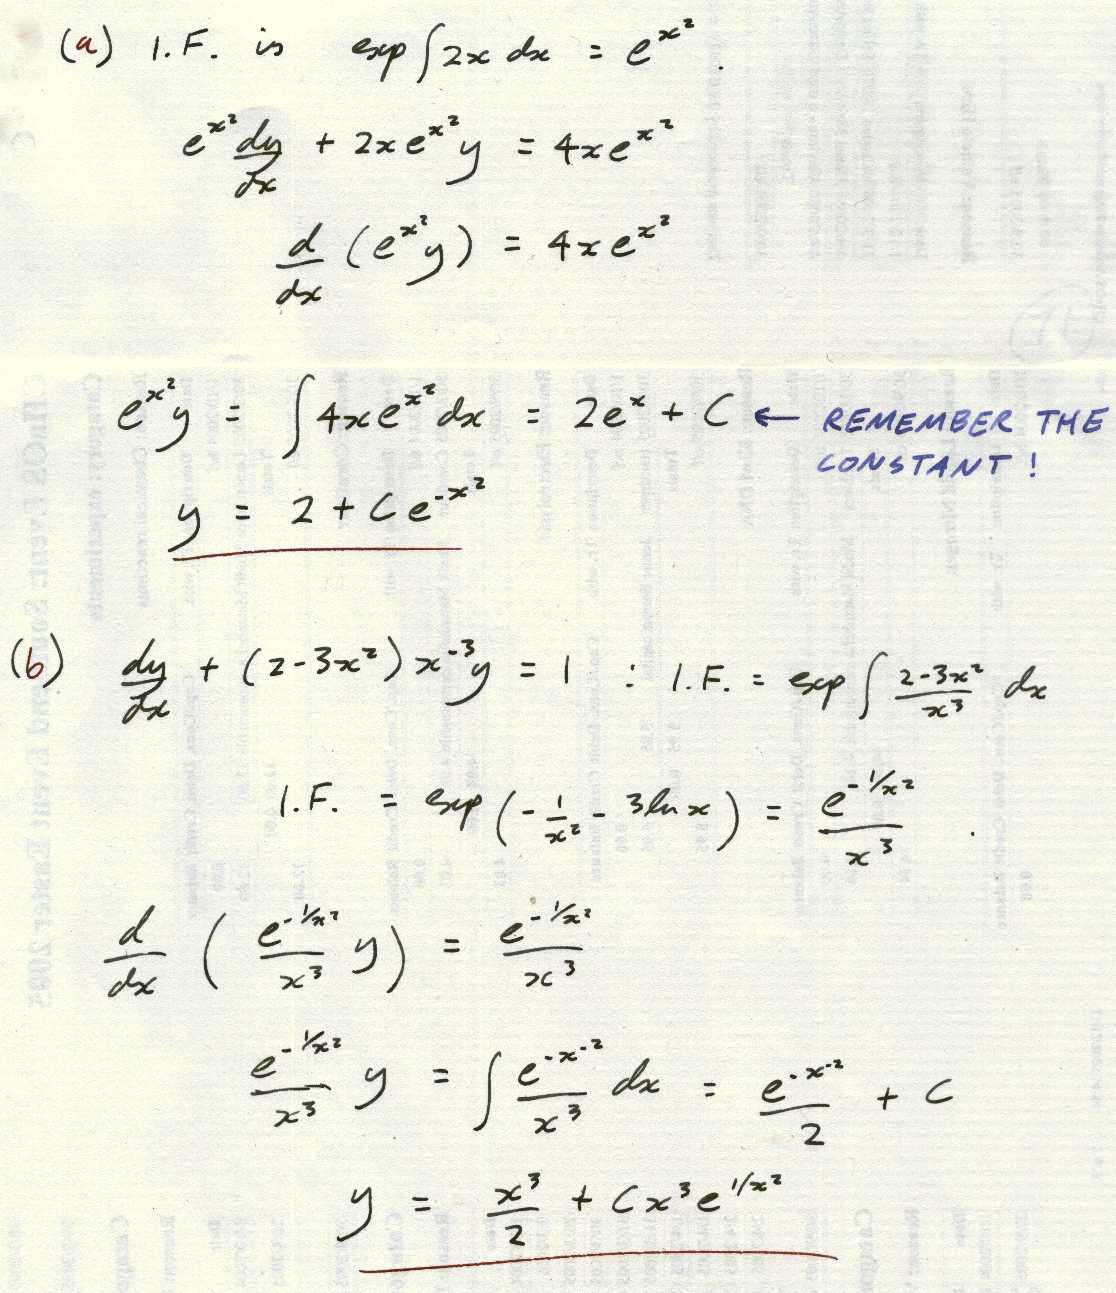 (a) I.F. is exp ∫ 2x dx = e^{x²}.
e^{x²} dy/dx + 2x e^{x²} y = 4x e^{x²}
d/dx (e^{x²} y) = 4x e^{x²}
e^{x²} y = ∫ 4x e^{x²} dx = 2e^x + C ← REMEMBER THE
CONSTANT!
y = 2 + C e^{-x²}
(b) dy/dx + (2-3x²) x^{-3} y = 1 ∴ I.F. = exp ∫ (2-3x²)/x³ dx
I.F. = exp (-1/x² - 3 ln x) = e^{-1/x²}/x³.
d/dx (e^{-1/x²}/x³ y) = e^{-1/x²}/x³
e^{-1/x²}/x³ y = ∫ e^{-x^{-2}}/x³ dx = e^{-x^{-2}}/2 + C
y = x³/2 + C x³ e^{1/x²}